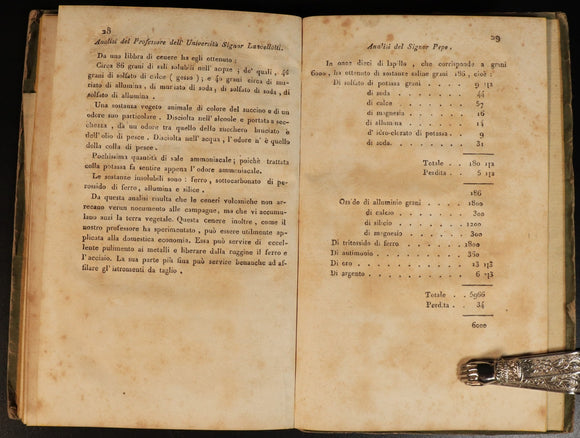 28
Analisi del Professore dell' Università Signor Lancellotti.
Da una libbra di cenere ha egli ottenuto:
Circa 86 grani di sali solubili nell' acqua; de' quali, 46
grani di solfato di calce (gesso); e 40 grani circa di mu-
riato di allumina, di muriato di soda; di solfato di soda, di
solfato di allumina.
Una sostanza vegeto animale di colore del succino e di un
odore suo particolare. Disciolta nell' alcoole e portata a sec-
chezza, dà un odore tra quello dello zucchero bruciato e
dell' olio di pesce. Disciolta nell' acqua, l'odore n' è quello
della colla di pesce.
Pochissima quantità di sale ammoniacale; poichè trattata
colla potassa fa sentire appena l'odore ammoniacale.
Le sostanze insolubili sono: ferro, sottocarbonato di pe-
rossido di ferro, allumina e silice.
Da questa analisi risulta che le ceneri volcaniche non ar-
recano verun nocumento alle campagne, ma che vi accumu-
lano anzi la terra vegetale. Questa cenere inoltre, come il
nostro professore ha sperimentato, può essere utilmente ap-
plicata alla domestica economia. Essa può servire di eccel-
lente pulimento ai metalli e liberare dalla ruggine il ferro e
l'acciaio. La sua parte più fina può servire benanche ad af-
filare gl' istromenti da taglio.
29
Analisi del Signor Pepe.
In once dieci di lapillo, che corrisponde a grani
6000, ha ottenuto di sostanze saline grani 186, cioè:
Di solfato di potassa grani . . 9 1/2
di soda . . . . . . . 44
di calce . . . . . . . 57
di magnesia . . . . . . 16
di allumina . . . . . . 14
d' idro-clorato di potassa . . 9
di soda . . . . . . . 31
Totale . . 180 1/2
Perdita . . 5 1/2
186
Ossido di alluminio grani . . . 1800
di calcio . . . . . . 300
di silicio . . . . . . 1200
di magnesio . . . . . 300
Di tritossido di ferro . . . . . 1800
Di antimonio . . . . . . . 360
Di oro . . . . . . . . 13 1/3
Di argento . . . . . . . 6 1/3
Totale . . 5966
Perdita . . 34
6000